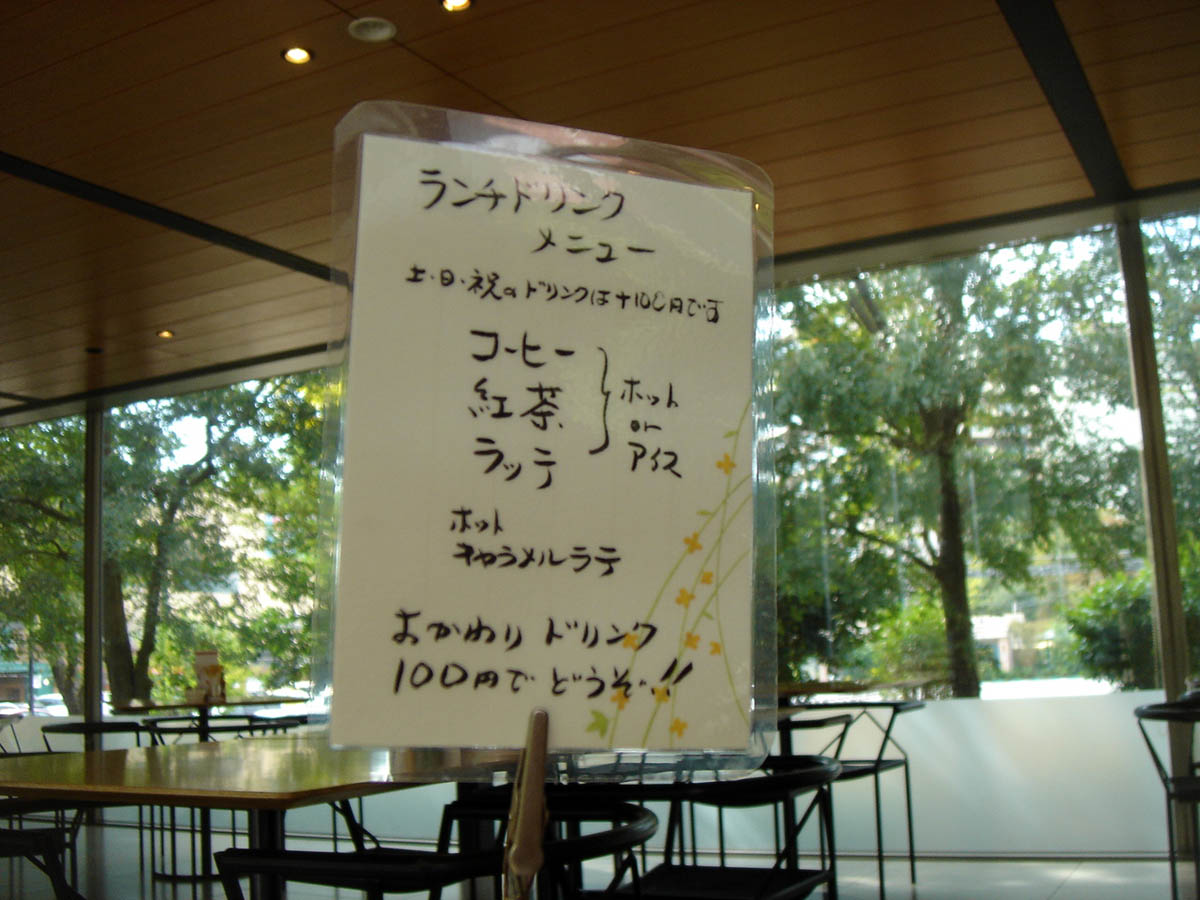 ランチドリンク
メニュー
土・日・祝のドリンクは+100円です
コーヒー
紅茶
ラッテ
ホット
or
アイス
ホット
キャラメルラテ
おかわりドリンク
100円でどうぞ!!